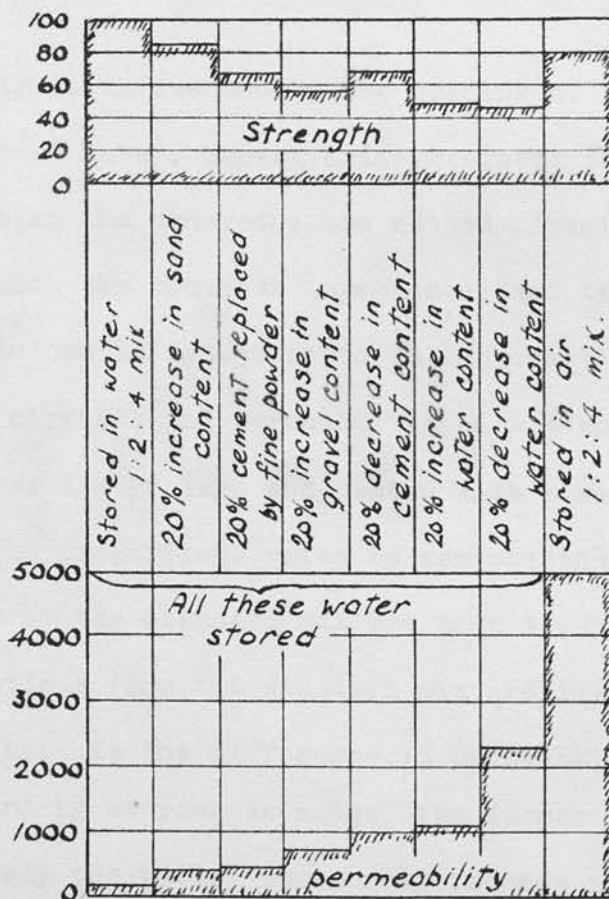 100
80
60
40
20
0
Strength
Stored in water
1:2:4 mix
20% increase in sand
content
20% cement replaced
by fine powder
20% increase in
gravel content
20% decrease in
cement content
20% increase in
water content
20% decrease in
water content
Stored in air
1:2:4 mix.
5000
4000
3000
2000
1000
0
All these water
stored
permeability